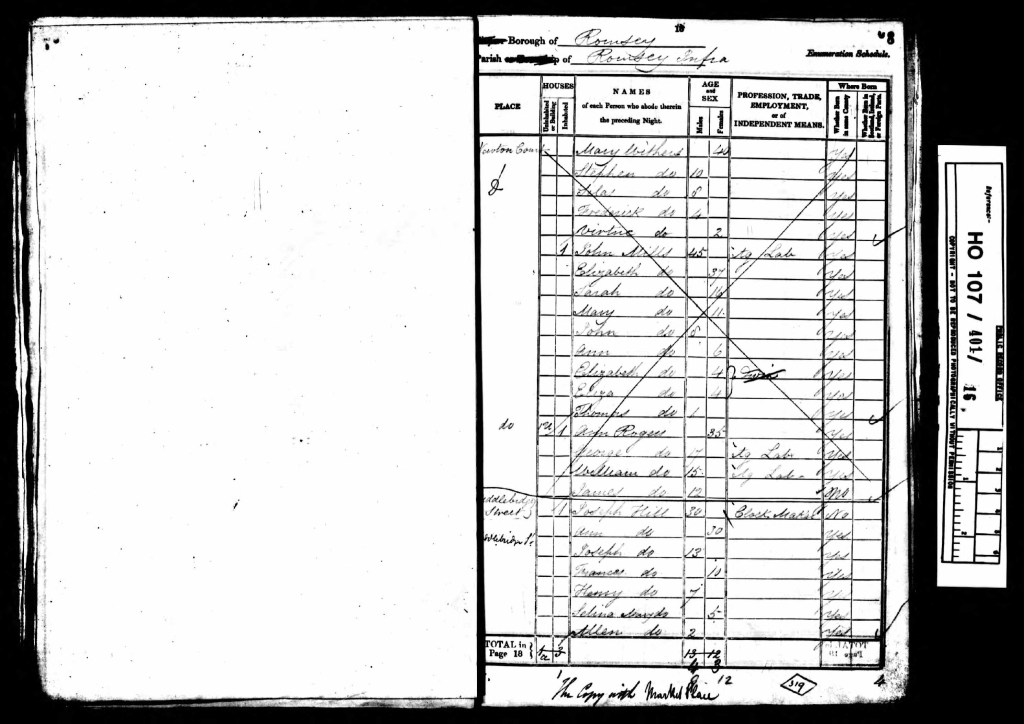 18
8
Borough of Romsey
Parish or Township of Romsey Infra
Enumeration Schedule.
PLACE
HOUSES
Uninhabited or Building
Inhabited
NAMES
of each Person who abode therein the preceding Night.
AGE and SEX
Males
Females
PROFESSION, TRADE, EMPLOYMENT, or of INDEPENDENT MEANS.
Where Born
Whether Born in same County
Whether Born in Scotland, Ireland, or Foreign Parts.
Newton Mary Withers 40 Yes
Stephen do 10 Yes
Silas do 8 Yes
Frederick do 4 Yes
do 2 Yes
1 John Mills 45 Ag Lab Yes
Elizabeth do 37 Yes
Sarah do Yes
Mary do 11 Yes
John do 8 Yes
Ann do 6 Yes
Elizabeth do 4 Yes
Eliza do 4 Yes
Thomas do 1 Yes
do 1 Ann Rogers 35 Yes
George do 17 Ag Lab Yes
William do 15 Ag Lab Yes
James do 12 No
Middlebridge Street 1 Joseph Hill 30 Clock Maker No
Middlebridge St Ann do 30 Yes
Joseph do 13 Yes
Frances do 10 Yes
Henry do 7 Y
Selina Mary do 5 Yes
Allen do 2 Yes
TOTAL in Page 18 3 13 12
4 3
12
The Copy with Market Place
519
4
Reference:-
HO 107 / 401 / 16
PUBLIC RECORD OFFICE
COPYRIGHT - NOT TO BE REPRODUCED PHOTOGRAPHICALLY WITHOUT PERMISSION